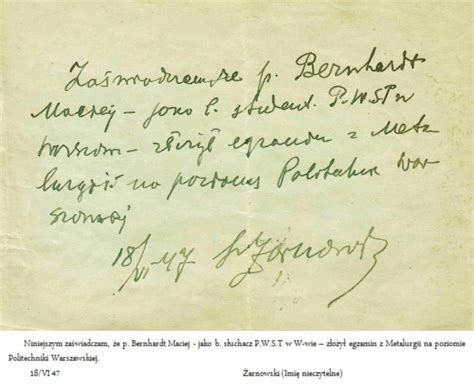 Zaświadczam, że p. Bernhardt
Maciej – jako b. student P.W.ST w
Warszaw – złożył egzamin z Meta
lurgii na poziomie Politechn War
szawskiej
18/VI 47 Żarnowski
Niniejszym zaświadczam, że p. Bernhardt Maciej - jako b. słuchacz P.W.S.T w W-wie – złożył egzamin z Metalurgii na poziomie
Politechniki Warszawskiej.
18/VI 47 Żarnowski (Imię nieczytelne)